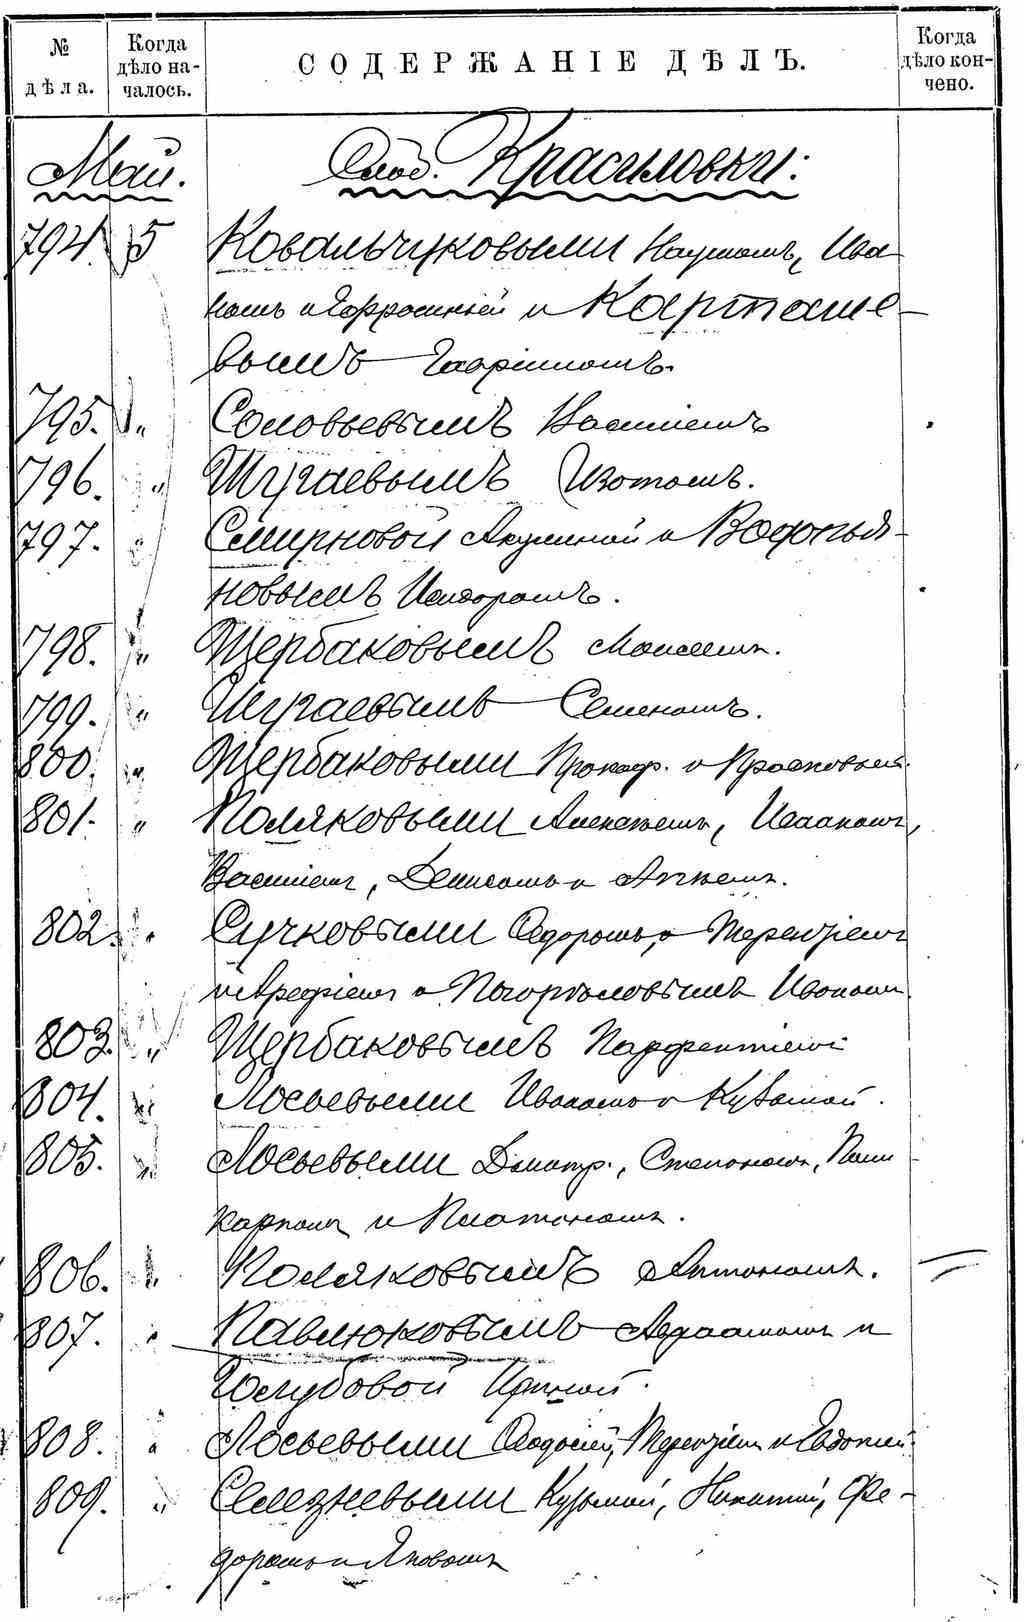 № дѣла.
Когда дѣло на-чалось.
СОДЕРЖАНІЕ ДѢЛЪ.
Когда дѣло кон-чено.
Май. Слоб. Красиловки:
794 5 Ковальчуковыми Наумомъ, Ива
номъ и Ефросиніей и Карташе-
вымъ Гавріиломъ.
795. „ Соловьевымъ Василіемъ
796. „ Шугаевымъ Изотомъ.
797. „ Смирновой Акулиной и Водопья-
новымъ Исидоромъ.
798. „ Щербаковымъ Моисеемъ.
799. „ Шугаевымъ Семеномъ.
800. „ Щербаковыми Прокоф. и Прасковьей.
801. „ Поляковыми Алексѣемъ, Иваномъ,
Василіемъ, Денисомъ и
802. „ Сучковыми Ѳедоромъ, Терентіемъ
и Арефіемъ и Погорѣловымъ Иваномъ.
803. „ Щербаковымъ Парфентіемъ
804. „ Лосьевыми Иваномъ и Кузьмой.
805. „ Лосьевыми Дмитр., Степаномъ, Поли
карпомъ и Платономъ.
806. „ Поляковымъ Антономъ.
807. „ Павлюковымъ Авраамомъ и
Голубовой Ириной.
808. „ Лосьевыми Ѳеодосіей, Терентіем и Евдокіей.
809. „ Селезневыми Кузьмой, Никитой, Фе-
доромъ и Яковомъ